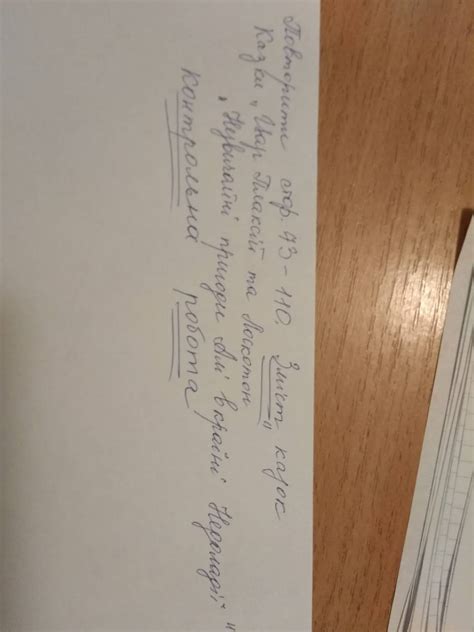 Повторити стор. 73-110. Зміст казок
Казки „Цар Плаксій та Лоскотон"
„Незвичайні пригоди Алі в країні Недоладії"
Контрольна робота